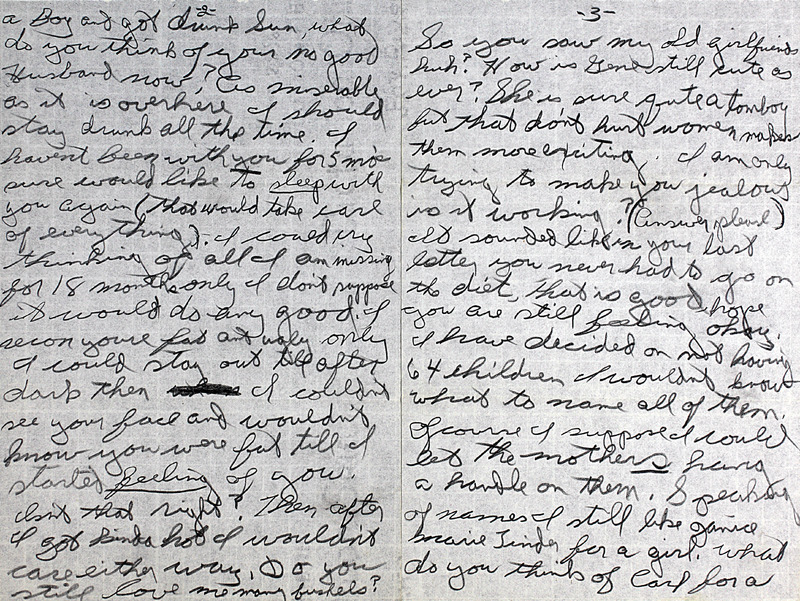 -2-
a Boy and got drunk Sun, what
do you think of your no good
Husband now? as miserable
as it is overhere I should
stay drunk all the time. I
havent been with you for 5 mos
sure would like to sleep with
you again (that would take care
of everything). I could cry
thinking of all I am missing
for 18 months only I dont suppose
it would do any good. I
recon youre fat and ugly only
I could stay out till after
dark then I couldnt
see your face and wouldnt
know you were fat till I
started feeling of you.
isnt that right? Then after
I got kinda hot I wouldnt
care either way. Do you
still love me many bushels?
-3-
So you saw my old girlfriends
huh? How is Gene still cute as
ever? She is sure qute a tomboy
but that dont hurt women makes
them more exciting. I am only
trying to make you jealous
is it working? (answer please)
It sounded like in your last
letter you never had to go on
the diet, that is good, hope
you are still feeling okay.
I have decided on not having
64 children I wouldnt know
what to name all of them.
Of course I suppose I could
let the mothers hang
a handle on them. Speaking
of names I still like Janice
Marie for a girl. What
do you think of Carl for a